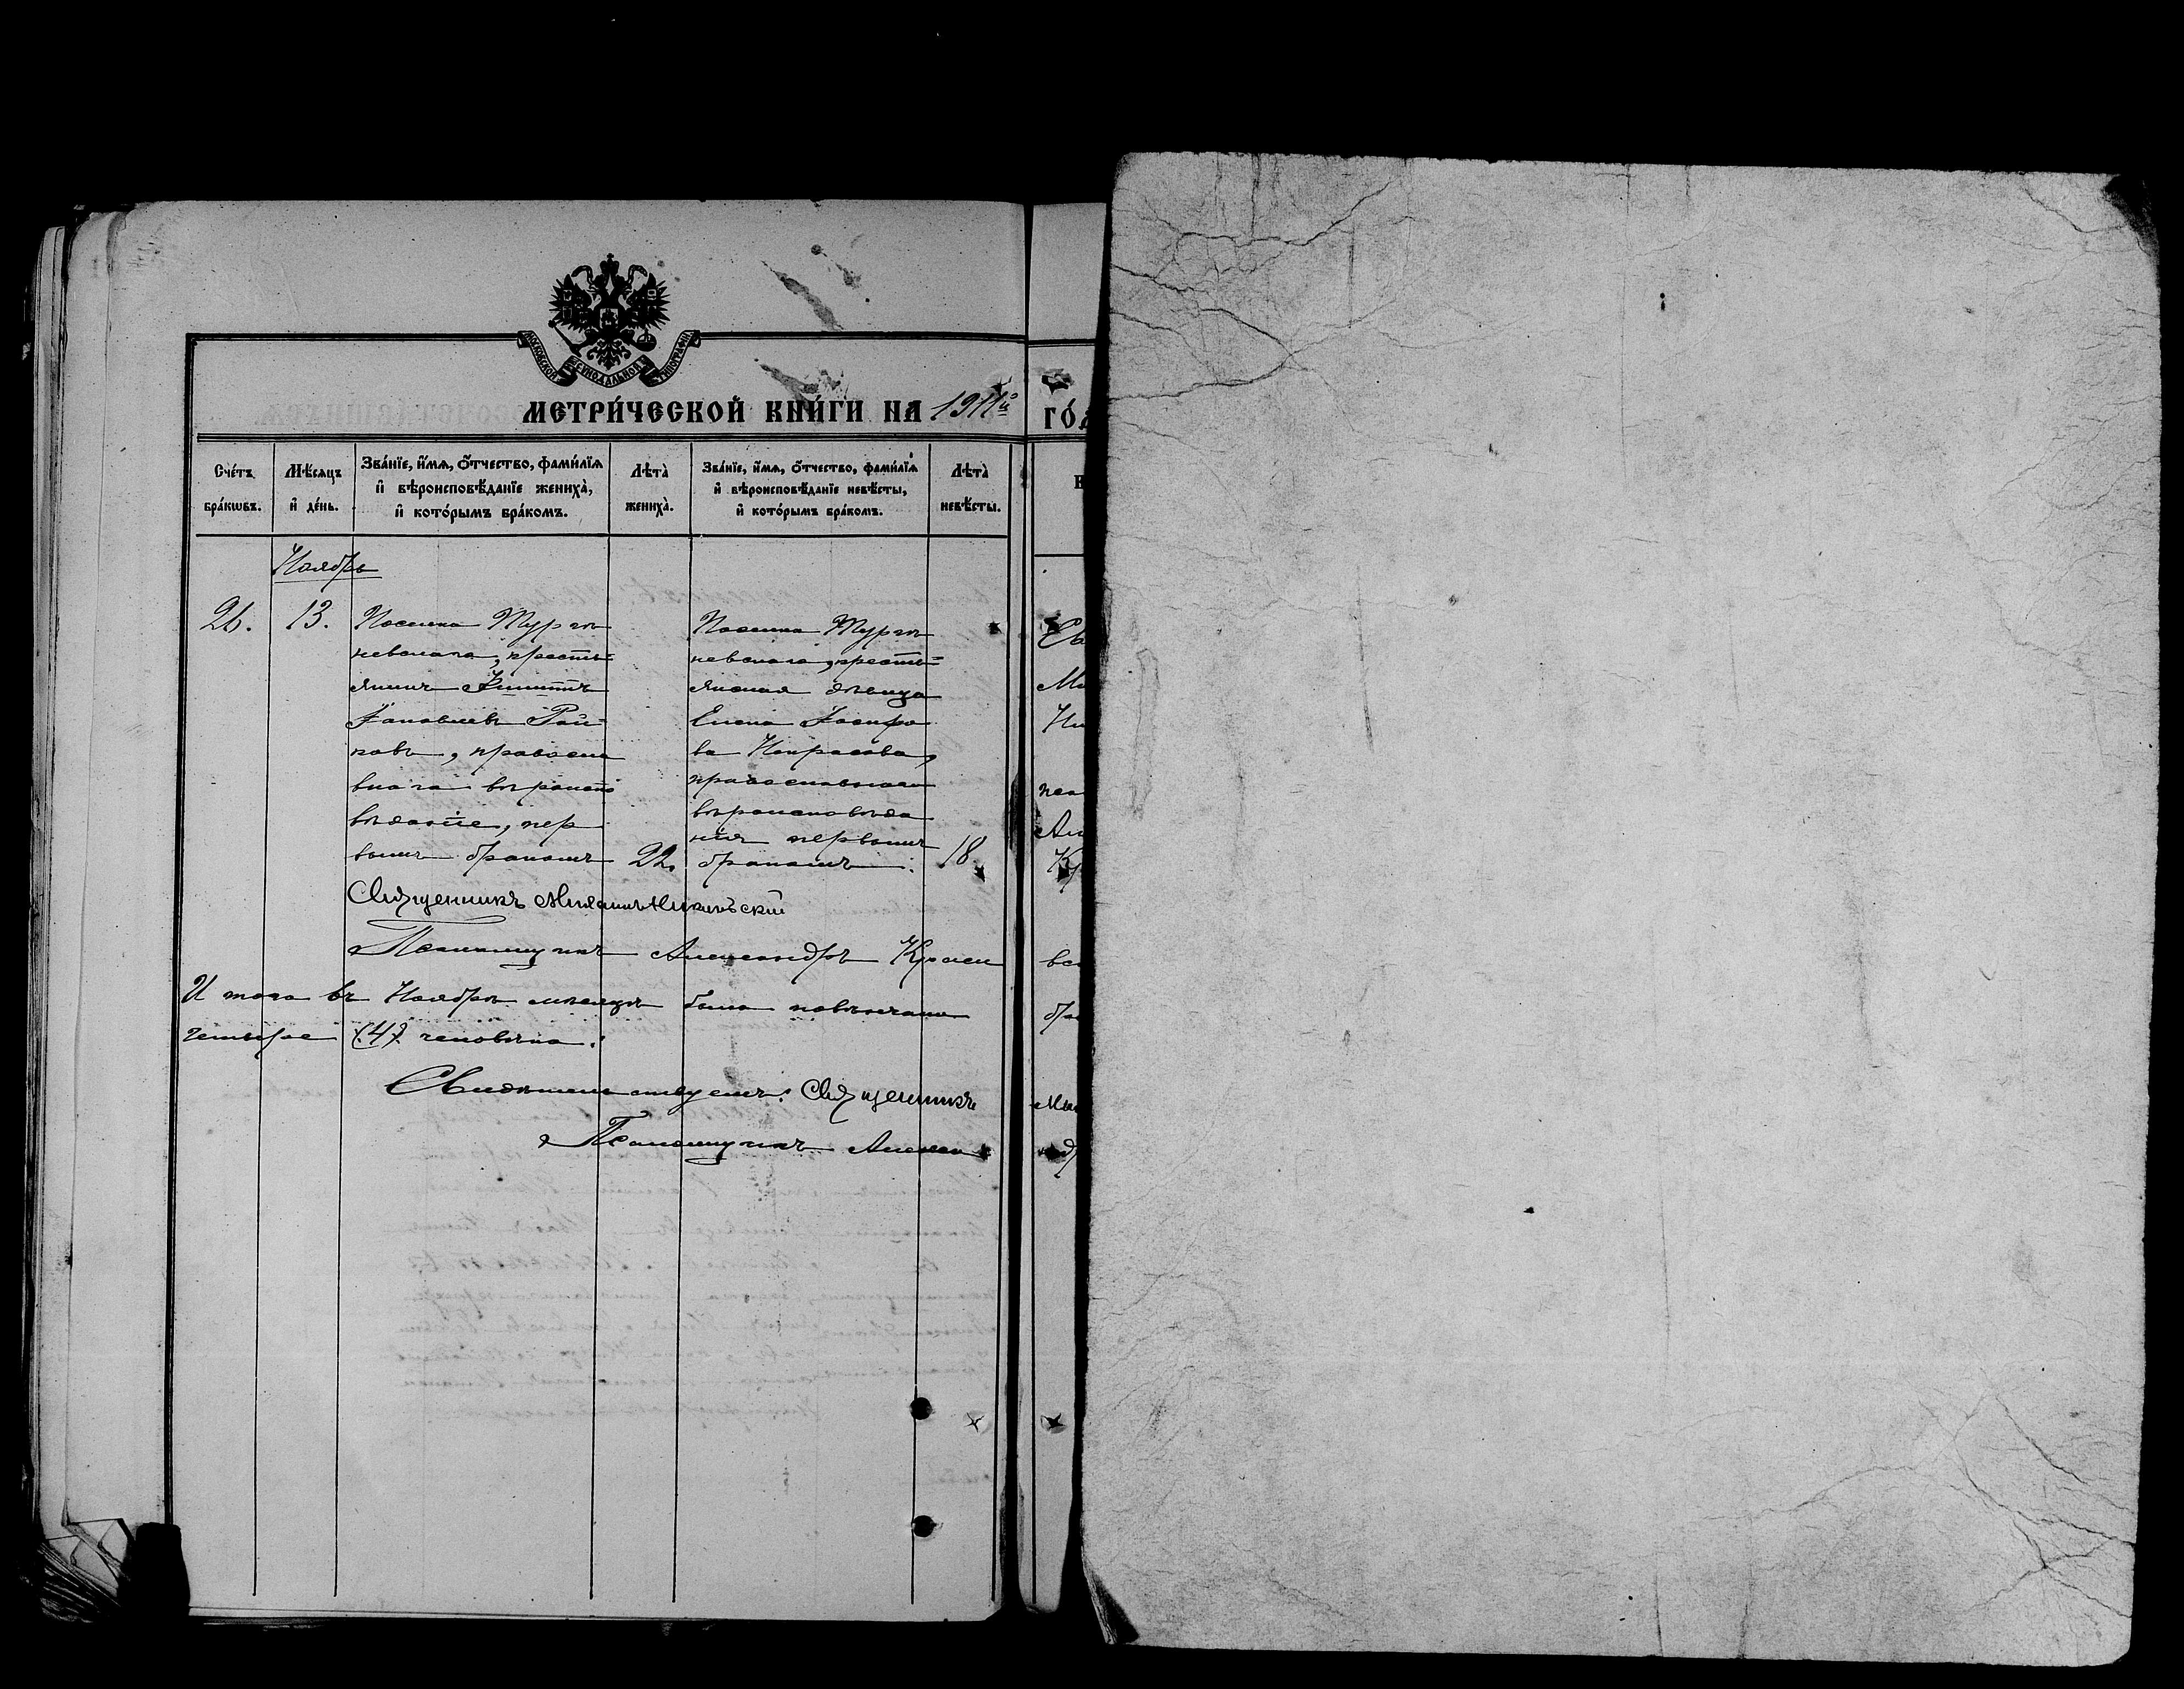 МОСКОВСКОЙ СѴНОДАЛЬНОЙ ТИПОГРАФІИ
МЕТРИ́ЧЕСКОЙ КНИ́ГИ НА 1911й ГО́Д
Сче́тъ бра́кѡвъ.
Мѣ́сяцъ и҆ де́нь.
Зва́нїе, и҆́мѧ, ѻ҆́тчество, фами́лїѧ
и҆ вѣроисповѣ́данїе жениха̀,
и҆ кото́рымъ бра́комъ.
Лѣта̀ жениха̀.
Зва́нїе, и҆́мѧ, ѻ҆́тчество, фами́лїѧ
и҆ вѣроисповѣ́данїе невѣ́сты,
и҆ кото́рымъ бра́комъ.
Лѣта̀ невѣ́сты.
Ноябрь
26. 13.
Поселка Турге
невскаго, кресть=
янинъ Филиппъ
Іаковлевъ Рай=
ковъ, правосла
внаго вѣроиспо
вѣданіе, пер
вымъ бракомъ
22.
Поселка Турге
невскаго, кресть=
янская дѣвица
Елена Іосифо
ва Некрасова,
православнаго
вѣроисповѣда
нія первымъ
бракомъ.
18
Священникъ Михаилъ Никольскій
Псаломщикъ Александръ Красн
И того въ Ноябрѣ мѣсяцѣ было повѣнчано
четыре (4) человѣка.
Свидѣтельствуемъ: Священникъ
Псаломщикъ Алексан